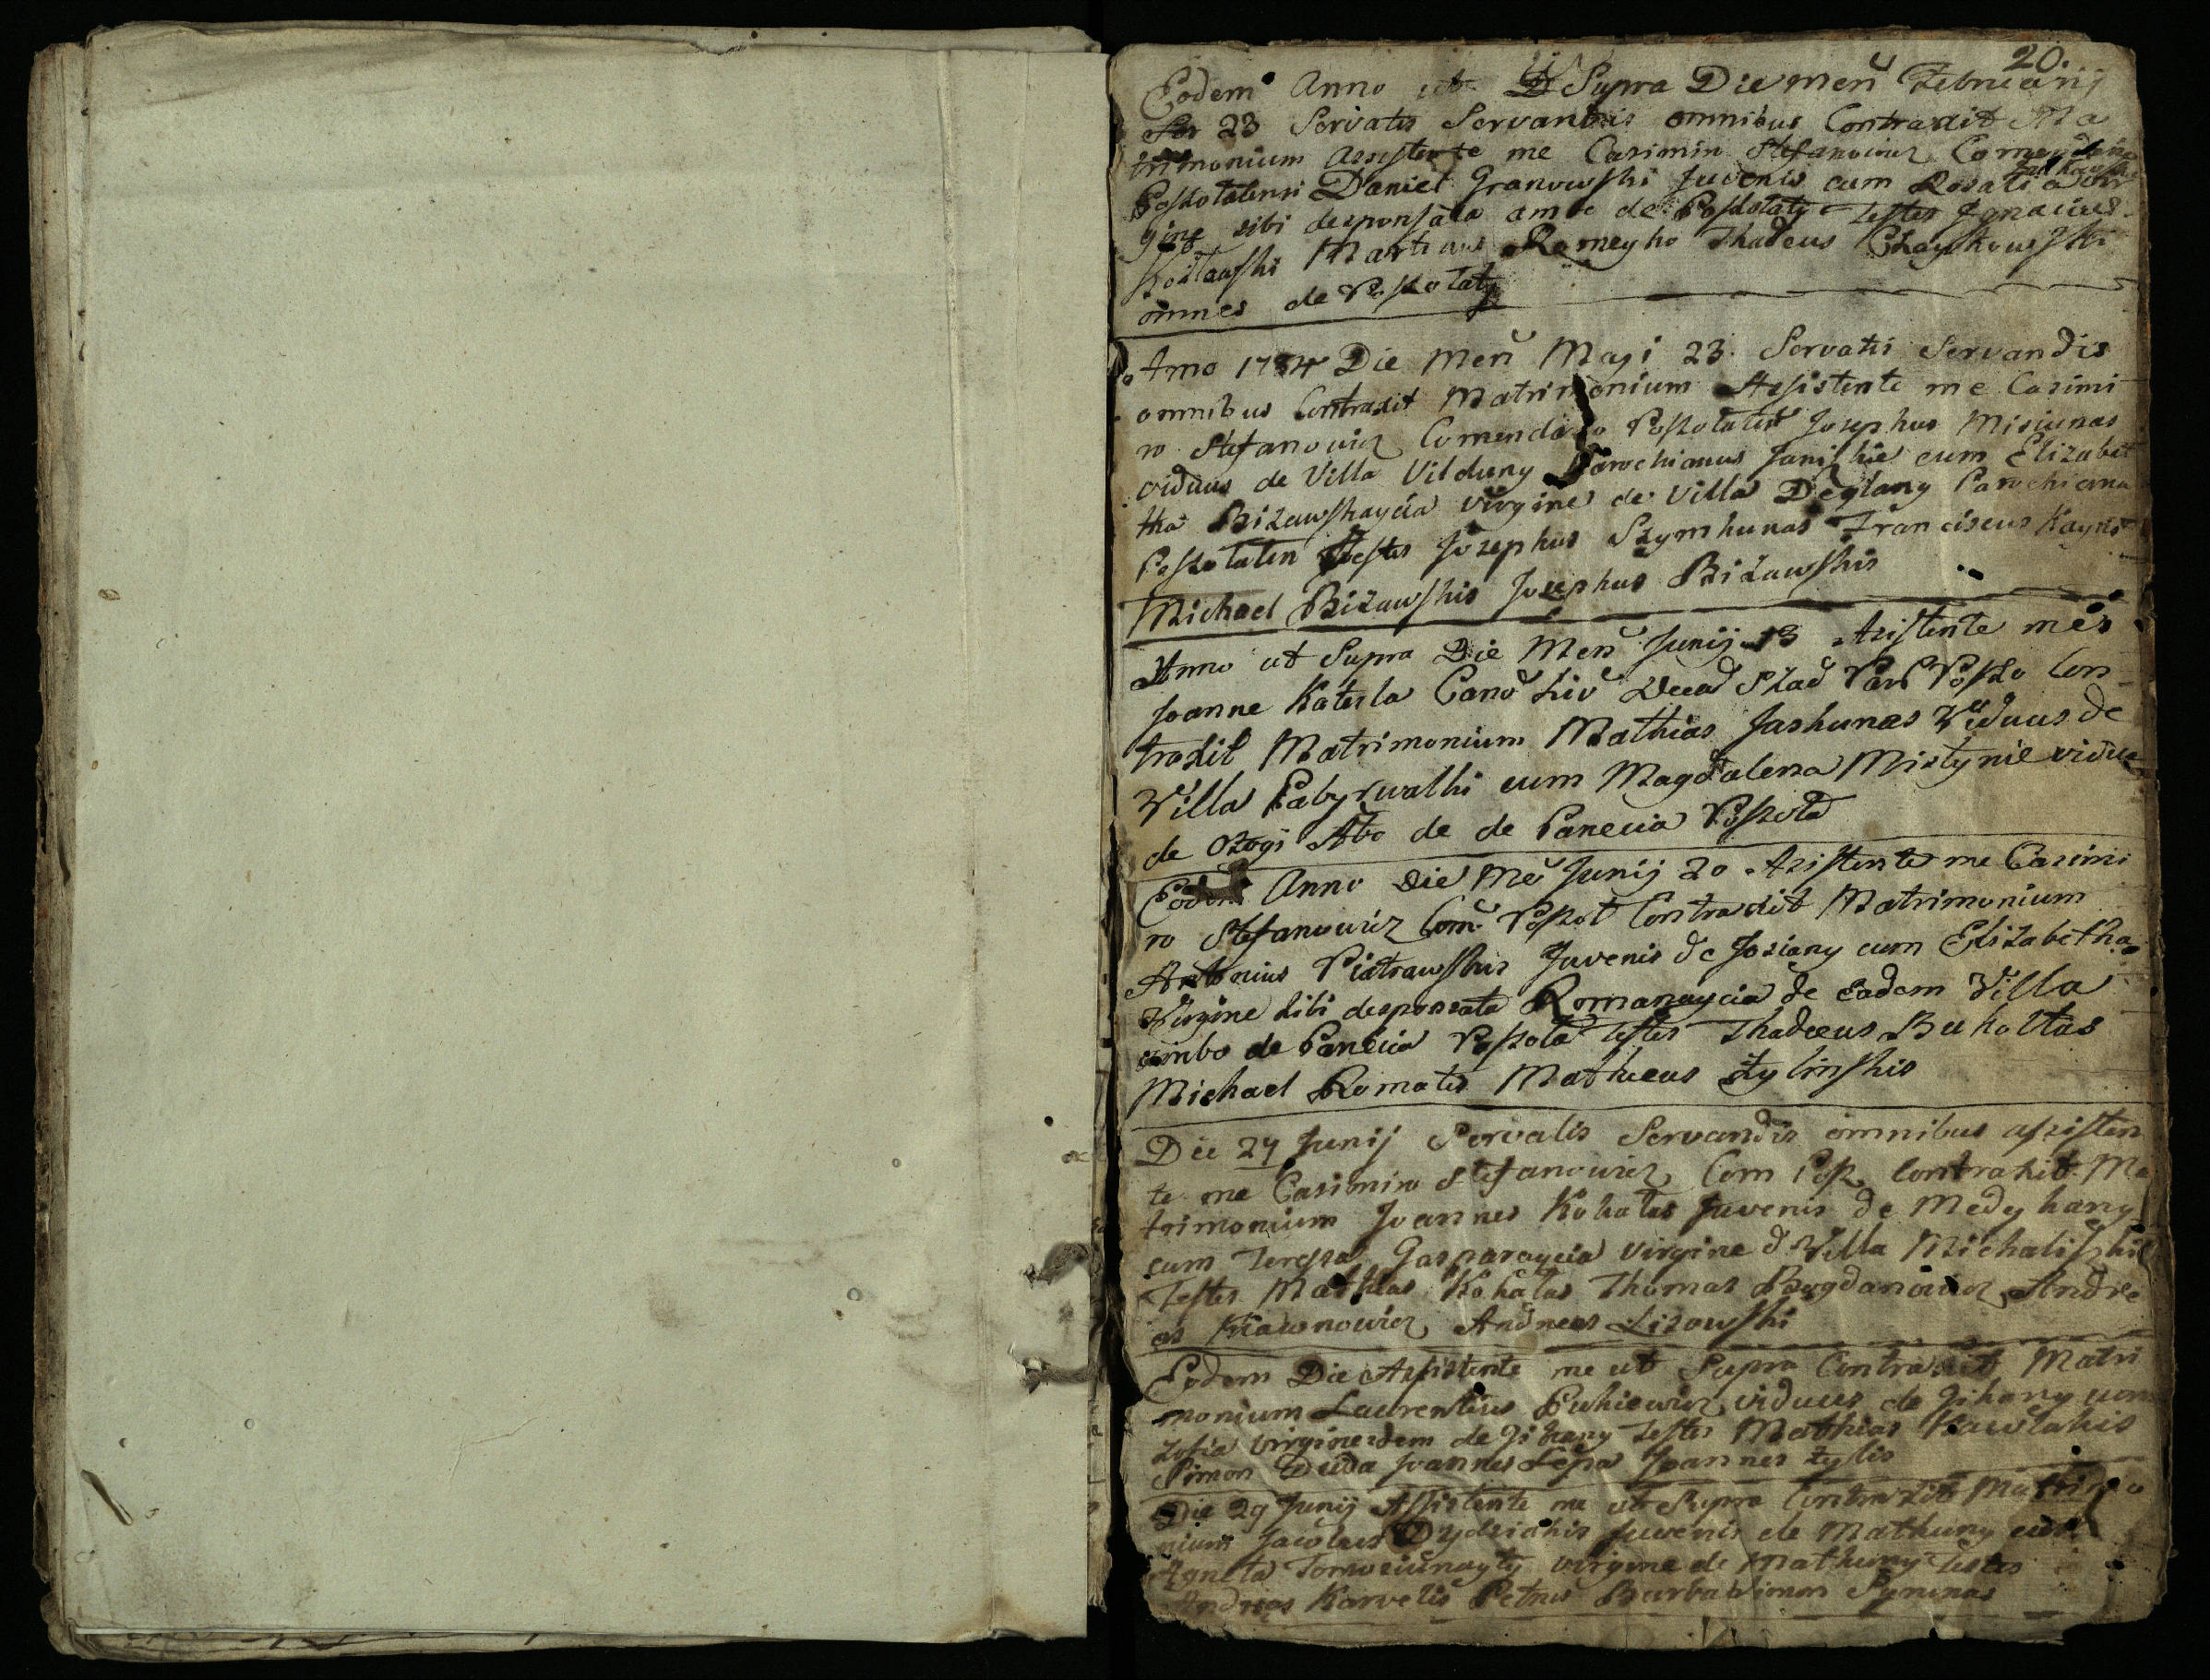 20.
Eodem Anno ut Supra Die Men Februarij
23 Servatis Servandis omnibus Contraxit Ma
trimonium Assistente me Casimiro Stefanowicz
Poszolatensi Daniel Granowski Juvenis cum Rosalia vir
gine sibi desponsata ambo de Poszolaty Testes Ignacius
Martinus Romeyko Thadeus Czaykowski
omnes de Poszolaty
Anno 1784 Die Men Maji 23. Servatis Servandis
omnibus Contraxit Matrimonium Assistente me Casimi
ro Stefanowicz Comendario Poszolaten Josephus Misiunas
viduus de Villa Vilduny Parochianus Janiszkie cum Elizabet
tha Bizawskaycia virgine de Villa Deglany Parochiana
Poszolaten Testes Josephus Szymkunas Franciscus
Michael Bizawskis Josephus Bizawskis
Anno ut Supra Die Men Junij 13 Asistente me
Joanne Katerla Cano Liv Decad Szad Par Poszo Con
traxit Matrimonium Mathias Jaskunas Viduus de
Villa Pabyrwalki cum Magdalena Mistynie vidua
de Ozogi Abo de de Parecia Poszola
Eodem Anno Die Me Junij 20 Asistente me Casimi
ro Stefanowicz Com Poszol Contraxit Matrimonium
Antonius Piatrawskis Juvenis de Joziany cum Elizabetha
Virgine sibi desponsata Romanaycia de eadem Villa
ambo de Parecia Poszola Testes Thadeus Bukoltas
Michael Romatis Matheus Zylinskis
Die 24 Junij Servatis Servandis omnibus assisten
te me Casimiro Stefanowicz Com Posz Contrahit Ma
trimonium Joannes Kokatas Juvenis de Medykany
cum Teressa Gasparaycia virgine d Villa Michaliszki
Testes Mathias Kokatas Thomas Bogdanowicz Andre
as Krawnowicz Andreas Lisowski
Eodem Die Assistente me ut Supra Contraxit Matri
monium Laurentius Pukiewicz viduus de Gikany cum
Zofia virgine idem de Gikany Testes Mathias Kawlakis
Simon Duda Joannes Lepa Joannes Zylis
Die 29 Junij Assistente me ut Supra Contraxit Matrimo
nium Jacobus Dydziakis Juvenis de Mathuny cum
Agneta Tomosiunayty virgine de Mathuny Testes
Andreas Karvelis Petrus Burba Simon